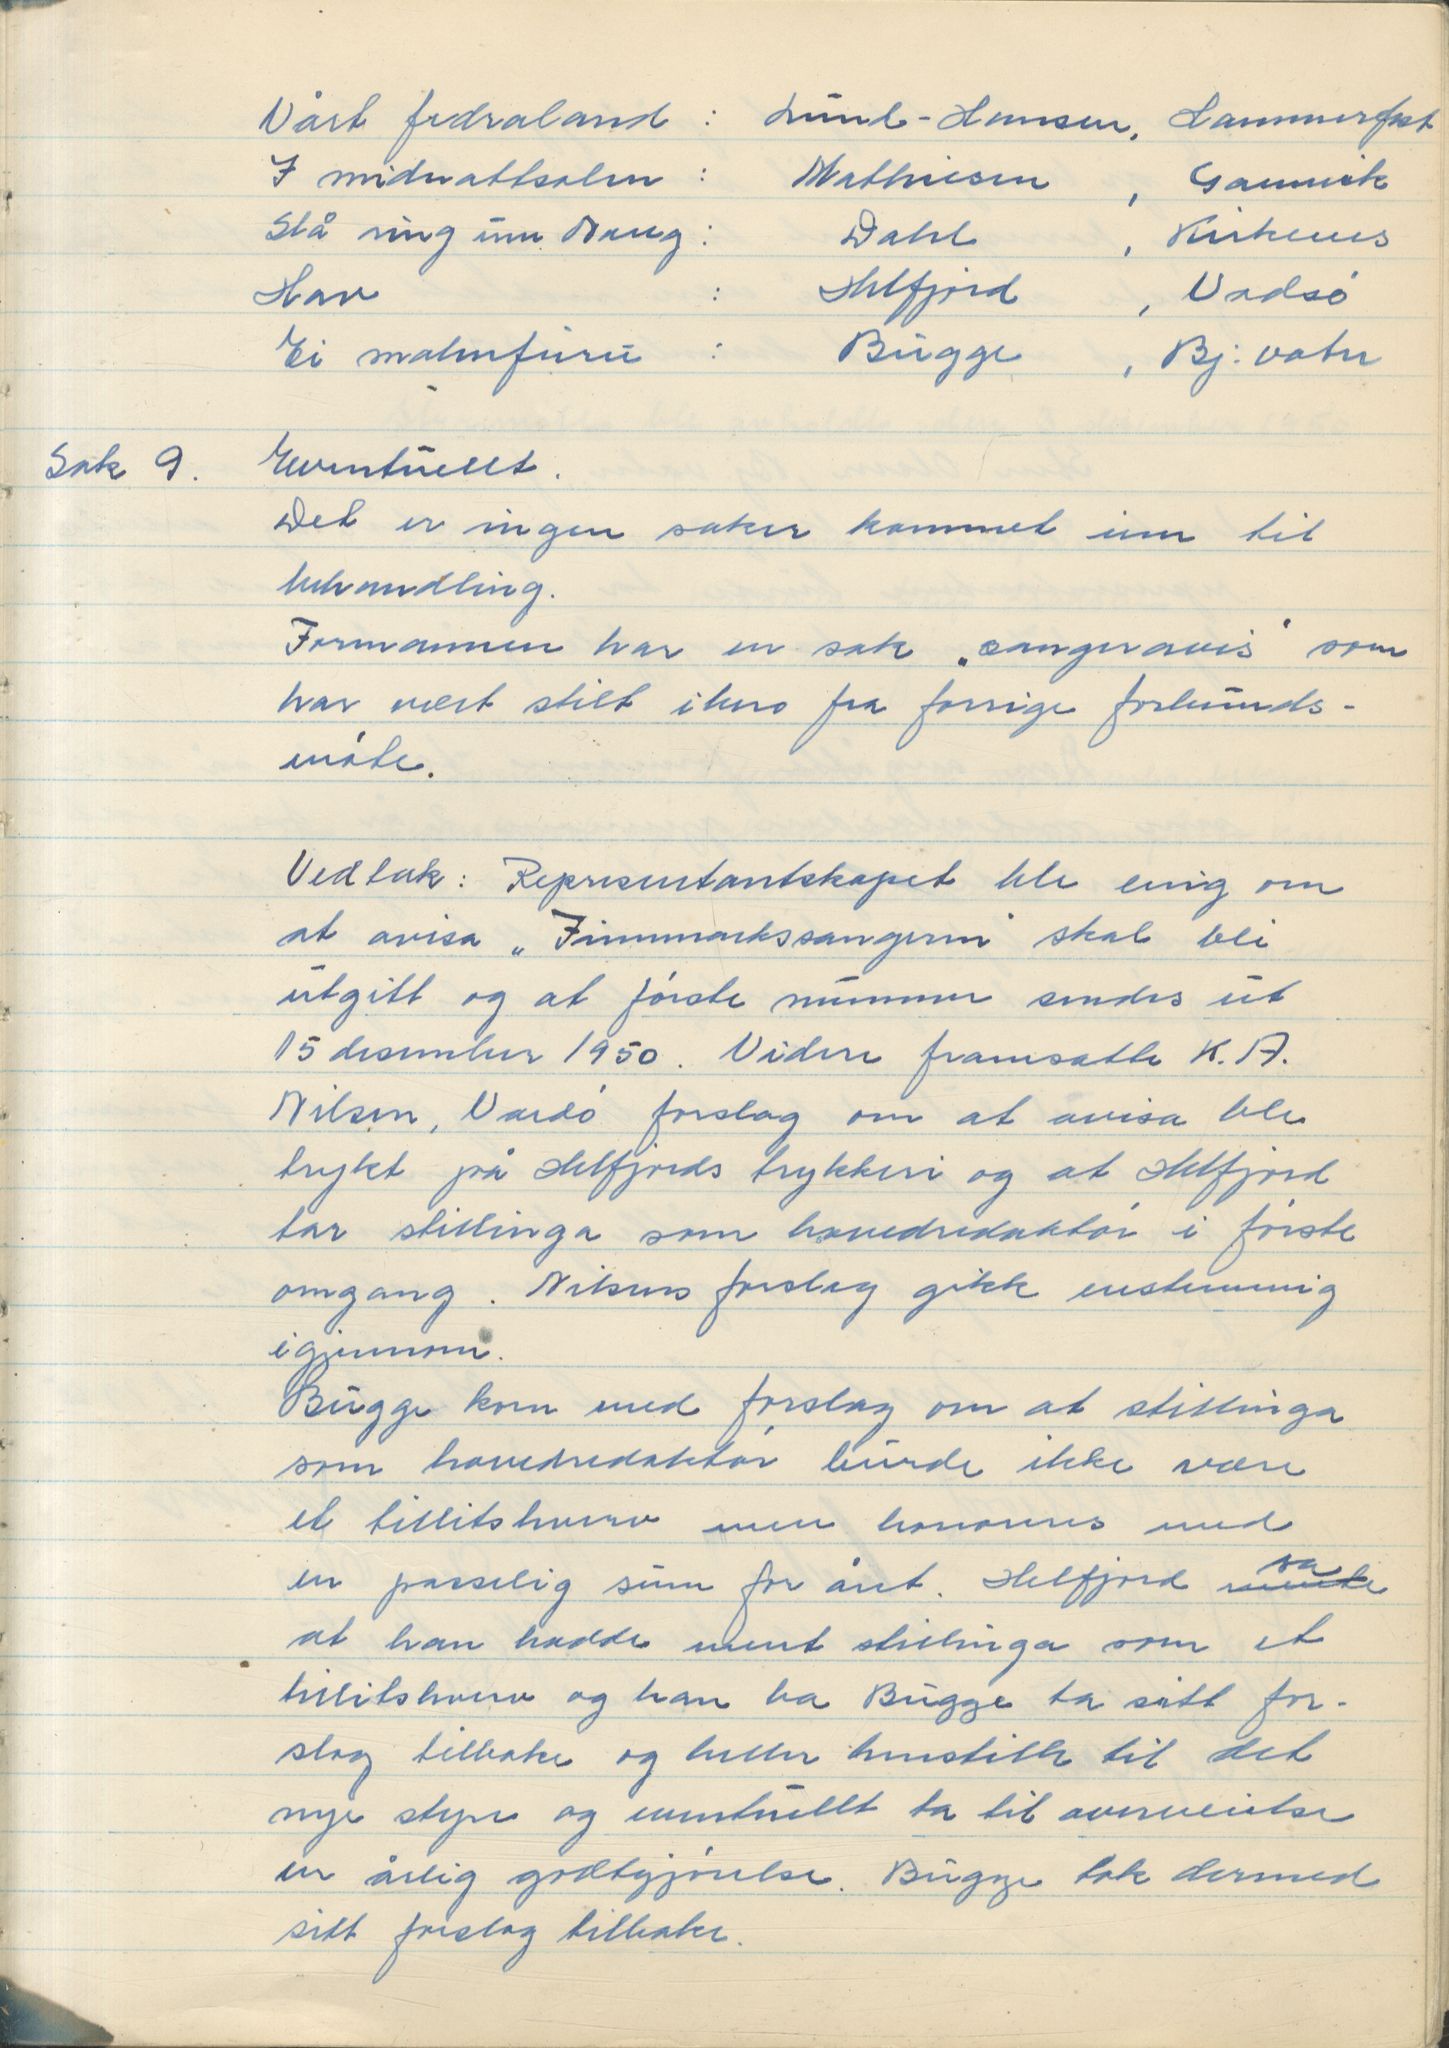 Vårt fedraland : Lund-Hansen, Hammerfest
I midnattsolen : Mathiesen , Gamvik
Slå ring um Noreg : Dahl , Kirkenes
Hav : Helfjord , Vadsö
Ei malmfuru : Bugge , Bj: vatn
Sak 9. Eventuellt.
Det er ingen saker kommet inn til
behandling.
Formannen har en sak „sangeravis" som
har vært stilt i bero fra forrige forbunds-
möte.
Vedtak: Representantskapet ble enig om
at avisa „Finnmarkssangeren" skal bli
utgitt og at förste nummer sendes ut
15 desember 1950. Videre framsatte K. A.
Nilsen, Vardö forslag om at avisa ble
trykt på Helfjords trykkeri og at Helfjord
tar stillinga som hovedredaktör i förste
omgang. Nilsens forslag gikk enstemmig
igjennom.
Bugge kom med forslag om at stillinga
som hovedredaktör burde ikke være
et tillitshverv men honoreres med
en passelig sum for året. Helfjord sa
at han hadde ment stillinga som et
tillitshverv og han ba Bugge ta sitt for-
slag tilbake og heller henstille til det
nye styre og eventuellt ta til overveielse
en årlig godtgjörelse. Bugge tok dermed
sitt forslag tilbake.